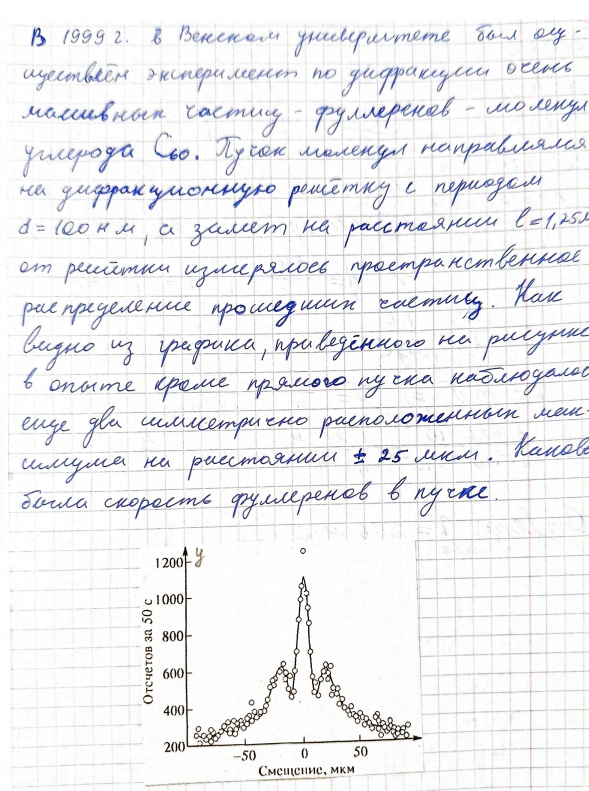 В 1999 г. в Венском университете был осу-
ществлён эксперимент по дифракции очень
массивных частиц - фуллеренов - молекул
углерода C60. Пучок молекул направлялся
на дифракционную решётку с периодом
d = 100 нм, а затем на расстоянии l = 1,25м
от решётки измерялось пространственное
распределение прошедших частиц. Как
видно из графика, приведённого на рисунке
в опыте кроме прямого пучка наблюдалос
еще два симметрично расположенных мак-
симума на расстоянии ± 25 мкм. Какова
была скорость фуллеренов в пучке.
y
1200
1000
800
600
400
200
Отсчетов за 50 с
−50 0 50
Смещение, мкм